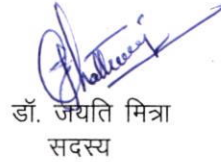 डॉ. जयति मित्रा
सदस्य